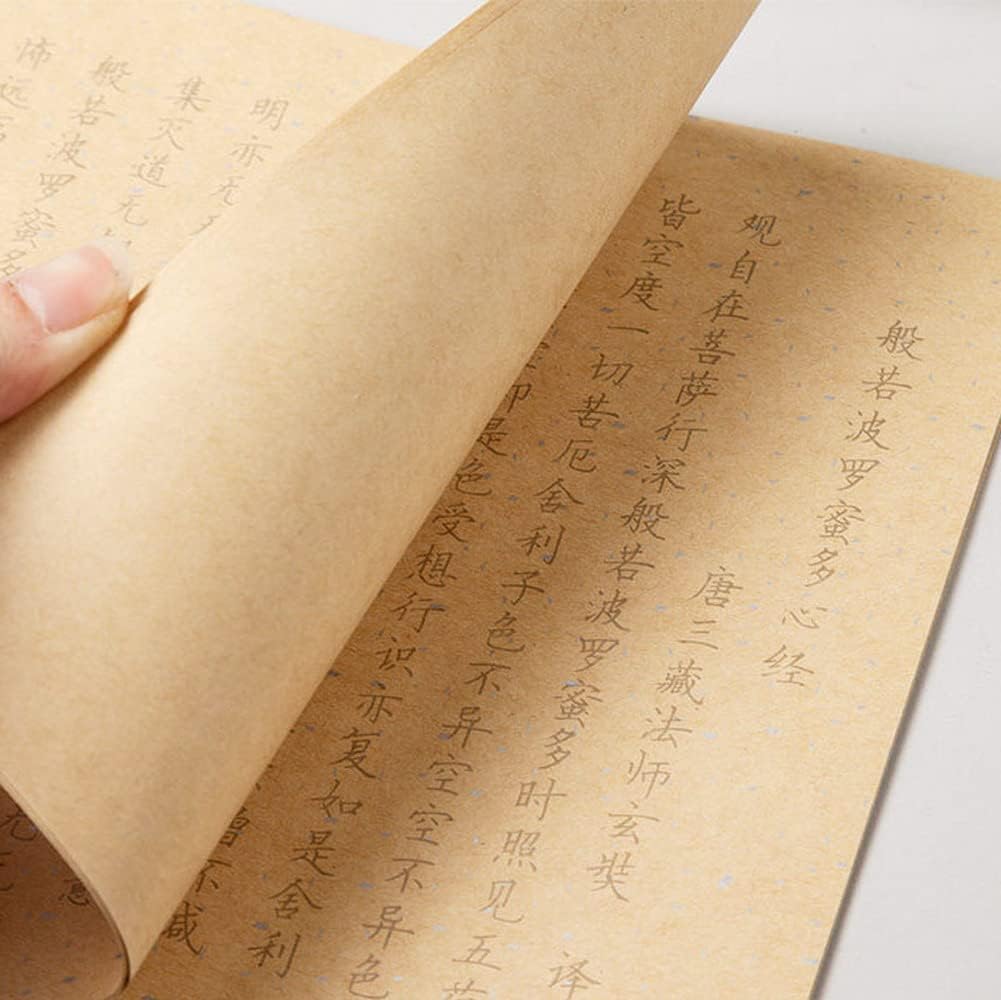 般若波罗蜜多心经
唐三藏法师玄奘 译
观自在菩萨行深般若波罗蜜多时照见五
皆空度一切苦厄舍利子色不异空空不异色
即是色受想行识亦复如是舍利
增不减
明亦无
集灭道无
般若波罗蜜多
怖远